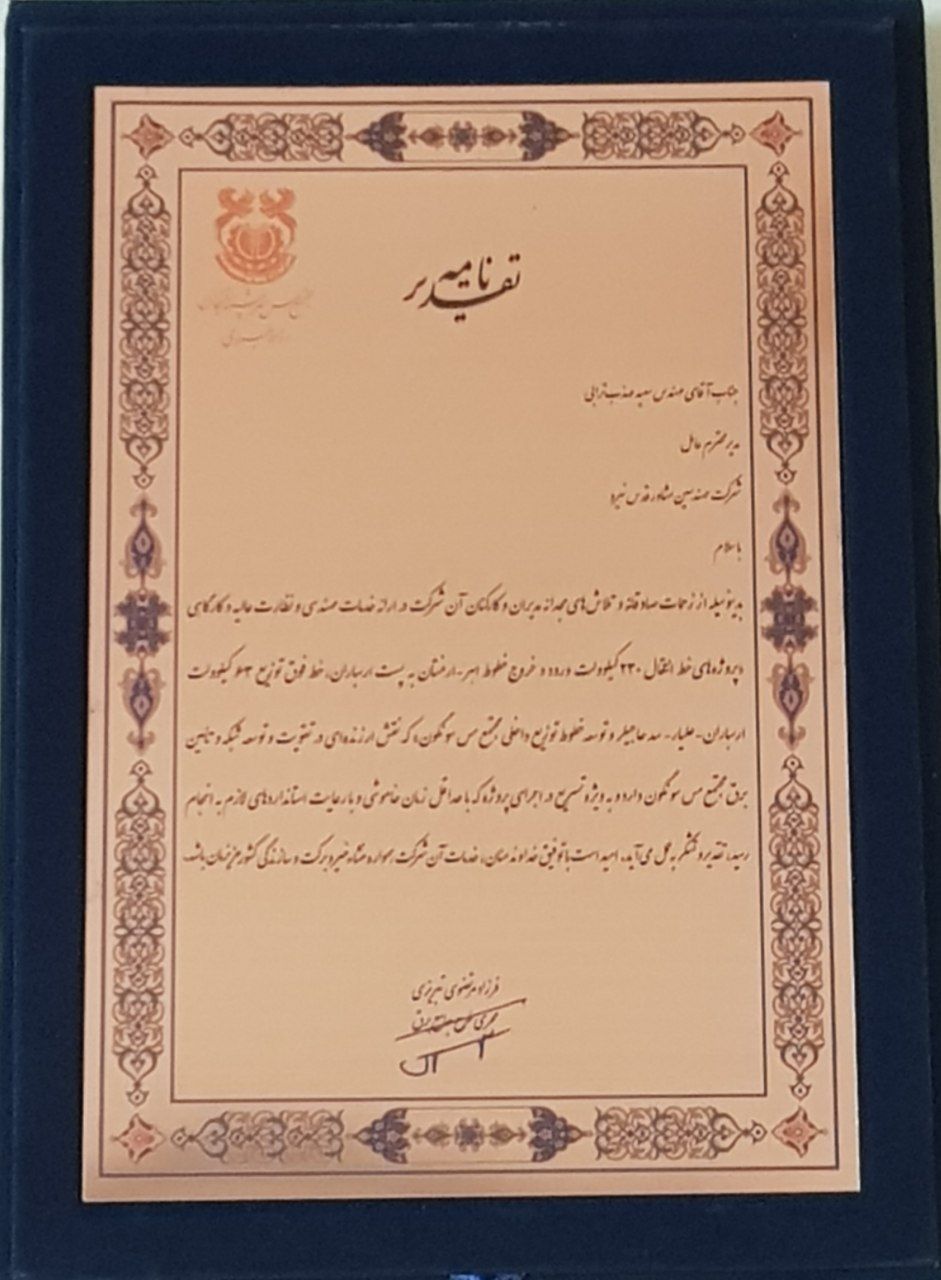 تقدیر نامه
جناب آقای مهندس سعید مهذب ترابی
مدیر محترم عامل
شرکت مهندسین مشاور قدس نیرو
با سلام
بدینوسیله از زحمات صادقانه و تلاش‌های مجدانه مدیران و کارکنان آن شرکت در ارائه خدمات مهندسی و نظارت عالیه و کارگاهی
«پروژه‌های خط انتقال ۲۳۰ کیلوولت ورود و خروج خطوط اهر-ارمنستان به پست ارسباران، خط فوق توزیع ۶۳ کیلوولت
ارسباران-علیار-سد حاجیلر و توسعه خطوط توزیع داخلی مجتمع مس سونگون» که نقش ارزنده‌ای در تقویت و توسعه شبکه و تأمین
برق مجتمع مس سونگون دارد و به ویژه تسریع در اجرای پروژه که با حداقل زمان خاموشی و با رعایت استانداردهای لازم به انجام
رسید، تقدیر و تشکر به عمل می‌آید. امید است با توفیق خداوند منان، خدمات آن شرکت همواره منشاء خیر و برکت و سازندگی کشور عزیزمان باشد.
فرزاد مرتضوی تبریزی
مجری طرح برق